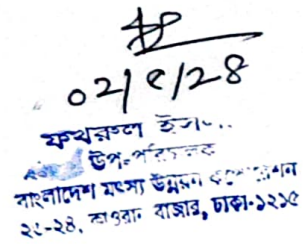 ০২/৫/২৪
ফখরুল ইস...
উপ-পরিচালক
বাংলাদেশ মৎস্য উন্নয়ন কর্পোরেশন
২৩-২৪, কাওরান বাজার, ঢাকা-১২১৫